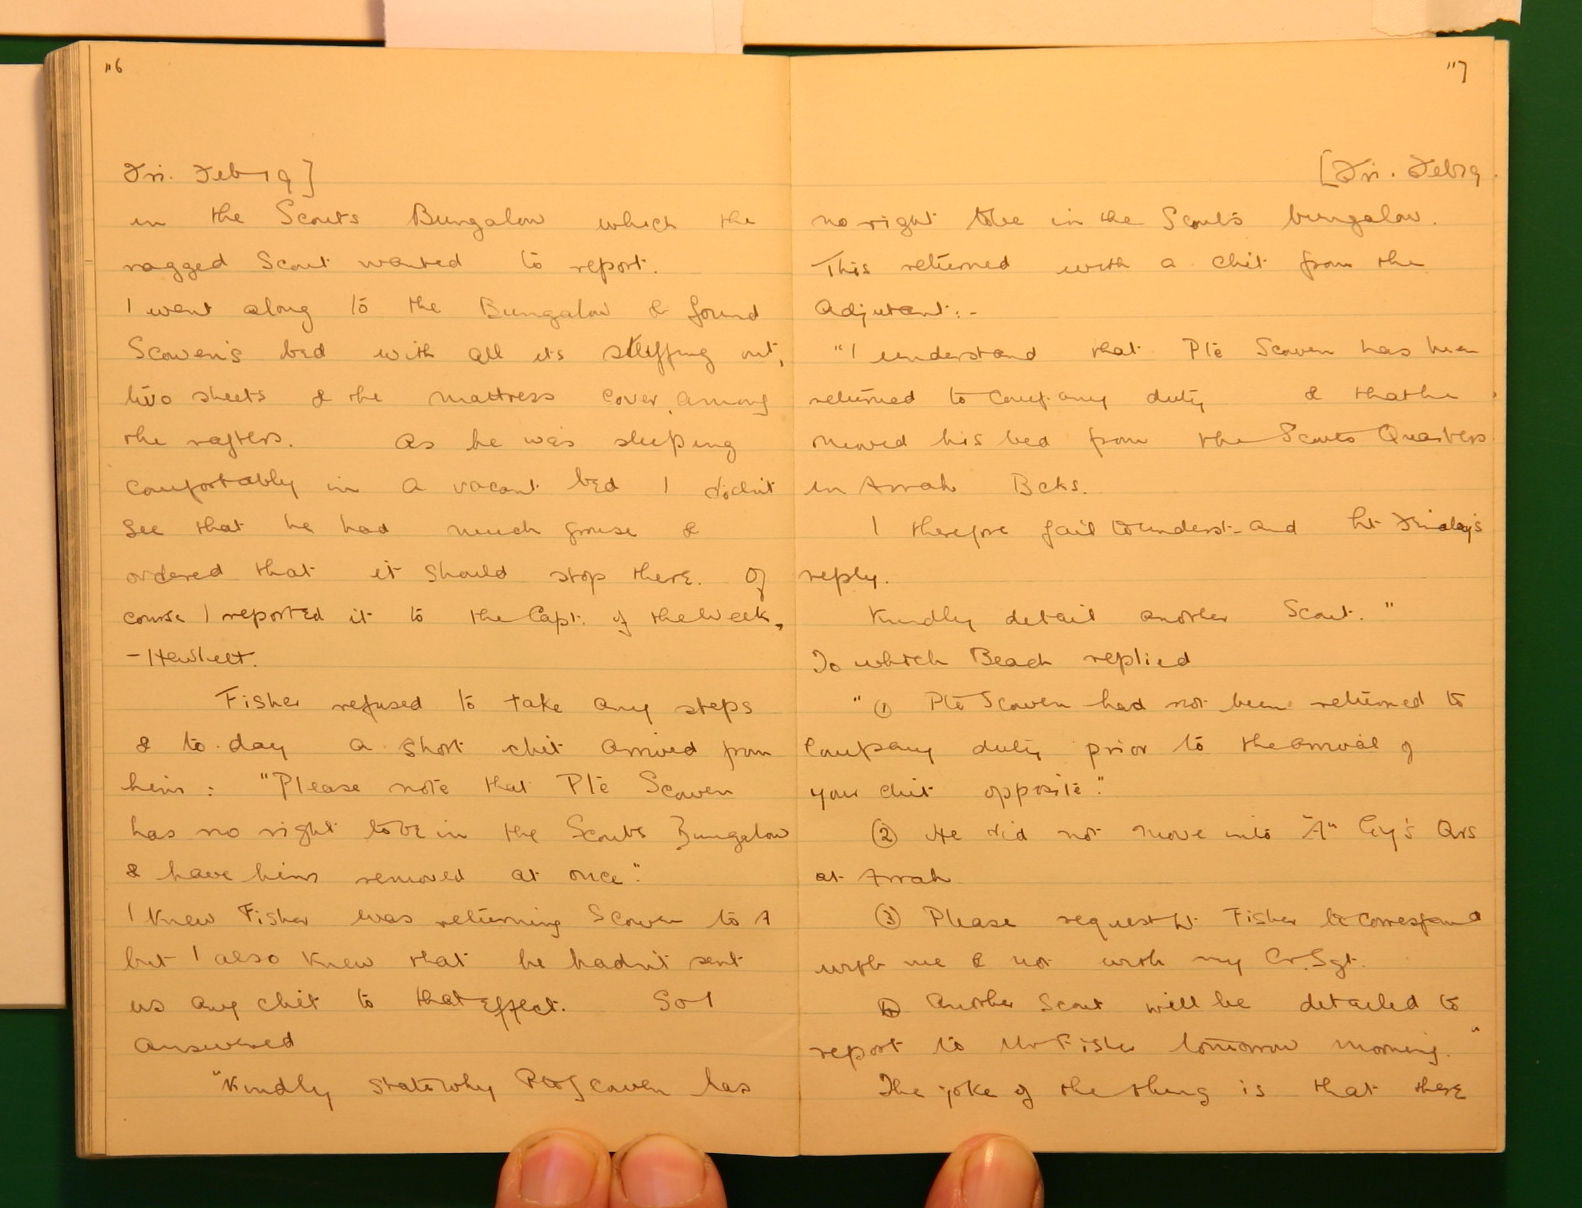 116
Fri. Feb 19]
in the Scouts Bungalow which the
ragged Scout wanted to report.
I went along to the Bungalow & found
Scoven's bed with all its stuffing out,
two sheets & the mattress cover among
the rafters. As he was sleeping
comfortably in a vacant bed I didn't
see that he had much grouse &
ordered that it should stop there. Of
course I reported it to the Capt. of the Week,
- Hewlett.
Fisher refused to take any steps
& to-day a short chit arrived from
him : "Please note that Pte Scoven
has no right to be in the Scouts Bungalow
& have him removed at once".
I knew Fisher was returning Scoven to A
but I also knew that he hadn't sent
us any chit to that effect. So I
answered
"Kindly state why Pte Scoven has
117
[Fri. Feb 19.
no right to be in the Scouts bungalow.
This returned with a chit from the
Adjutant:-
"I understand that Pte Scoven has been
returned to Company duty & that he
moved his bed from the Scouts Quarters
in Arrah Bcks.
I therefore fail to understand
reply.
Kindly detail another Scout."
To which Beach replied
"① Pte Scoven had not been returned to
Company duty prior to the arrival of
your chit opposite".
② He did not move into "A" Coy's Qrs
at Arrah
③ Please request Lt. Fisher to correspond
with me & not with my Cr. Sgt.
④ Another Scout will be detailed to
report to Mr Fisher tomorrow morning."
The joke of the thing is that there